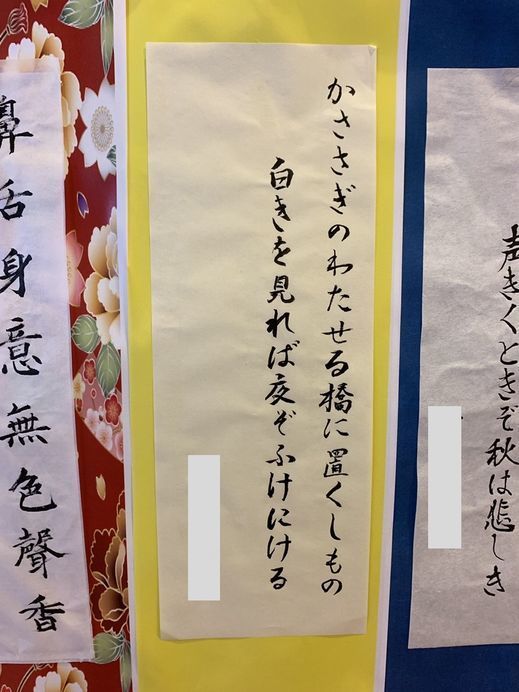 かささぎのわたせる橋に置くしもの
白きを見れば夜ぞふけにける
声きくときぞ秋は悲しき
鼻舌身意無色聲香